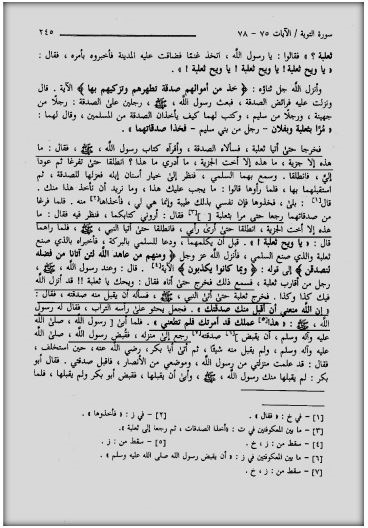 سورة التوبة / الآيات ٧٥ – ٧٨ ٢٤٥
ثعلبة ؟ » فقالوا : يا رسول الله ، اتخذ غنمًا فضاقت عليه المدينة فأخبروه بأمره ، فقال :
« يا ويح ثعلبة ! يا ويح ثعلبة ! يا ويح ثعلبة ! » .
وأنزل الله جل ثناؤه : ﴿ خذ من أموالهم صدقة تطهرهم وتزكيهم بها ﴾ الآية . قال
ونزلت عليه فرائض الصدقة ، فبعث رسول الله ، ﷺ ، رجلين على الصدقة : رجلًا من
جهينة ، ورجلًا من سليم ، وكتب لهما كيف يأخذان الصدقة من المسلمين ، وقال لهما :
« مُرَّا بثعلبة وبفلان – رجل من بني سليم – فخذا صدقاتهما » .
فخرجا حتى أتيا ثعلبة ، فسألاه الصدقة ، وأقرآه كتاب رسول الله ، ﷺ ، فقال : ما
هذه إلا جزية ، ما هذه إلا أخت الجزية ، ما أدري ما هذا ؟ انطلقا حتى تفرغا ثم عودا
إليَّ ، فانطلقا . وسمع بهما السلمي ، فنظر إلى خيار أسنان إبله فعزلها للصدقة ، ثم
استقبلهما بها ، فلما رأوها قالوا : ما يجب عليك هذا ، وما نريد أن نأخذ هذا منك .
قال[١] : بلى ، فخذوها فإن نفسي بذلك طيبة وإنما هي لي ، فأخذاها[٢] منه . فلما فرغا
من صدقاتهما رجعا حتى مرا بثعلبة [ ][٣] فقال : أروني كتابكما ، فنظر فيه فقال : ما
هذه إلا أخت الجزية ، انطلقا حتى أرى رأيي ، فانطلقا حتى أتيا النبي ، ﷺ ، فلما رآهما
قال : « يا ويح ثعلبة ! » . قبل أن يكلمهما ، ودعا للسلمي بالبركة ، فأخبراه بالذي صنع
ثعلبة والذي صنع السلمي ، فأنزل الله عز وجل ﴿ ومنهم من عاهد الله لئن آتانا من فضله
لنصدقن ﴾ إلى قوله : ﴿ وبما كانوا يكذبون ﴾ الآية[٤] . قال : وعند رسول الله ، ﷺ ،
رجل من أقارب ثعلبة ، فسمع ذلك فخرج حتى أتاه فقال : ويحك يا ثعلبة !! قد أنزل الله
فيك كذا وكذا . فخرج ثعلبة حتى أتى النبي ، ﷺ ، فسأله أن يقبل منه صدقته ، فقال :
« إن الله منعني أن أقبل منك صدقتك » . فجعل يحثو على رأسه التراب ، فقال له رسول
الله ، ﷺ : « هذا[٥] عملك قد أمرتك فلم تطعني » . فلما أبى [ رسول الله ، صلى الله
عليه وآله وسلم ، أن يقبض ][٦] صدقته[٧] رجع إلى منزله ، فقبض رسول الله ، صلى الله
عليه وآله وسلم ، ولم يقبل منه شيئًا ، ثم أتى أبا بكر ، رضي الله عنه ، حين استخلف ،
فقال : قد علمت منزلتي من رسول الله ، وموضعي من الأنصار ، فاقبل صدقتي . فقال أبو
بكر : لم يقبلها منك رسول الله ، ﷺ ، وأبى أن يقبلها ، فقبض أبو بكر ولم يقبلها ، فلما
[١] – في خ : « فقال » . [٢] – في ز : « فأخذوها » .
[٣] – ما بين المعكوفتين في ت : « أخذا الصدقات ، ثم رجعا إلى ثعلبة » .
[٤] – سقط من : ز ، خ . [٥] – سقط من : ز .
[٦] – ما بين المعكوفتين في ز : « أن يقبض رسول الله صلى الله عليه وسلم » .
[٧] – سقط من : ز ، خ .